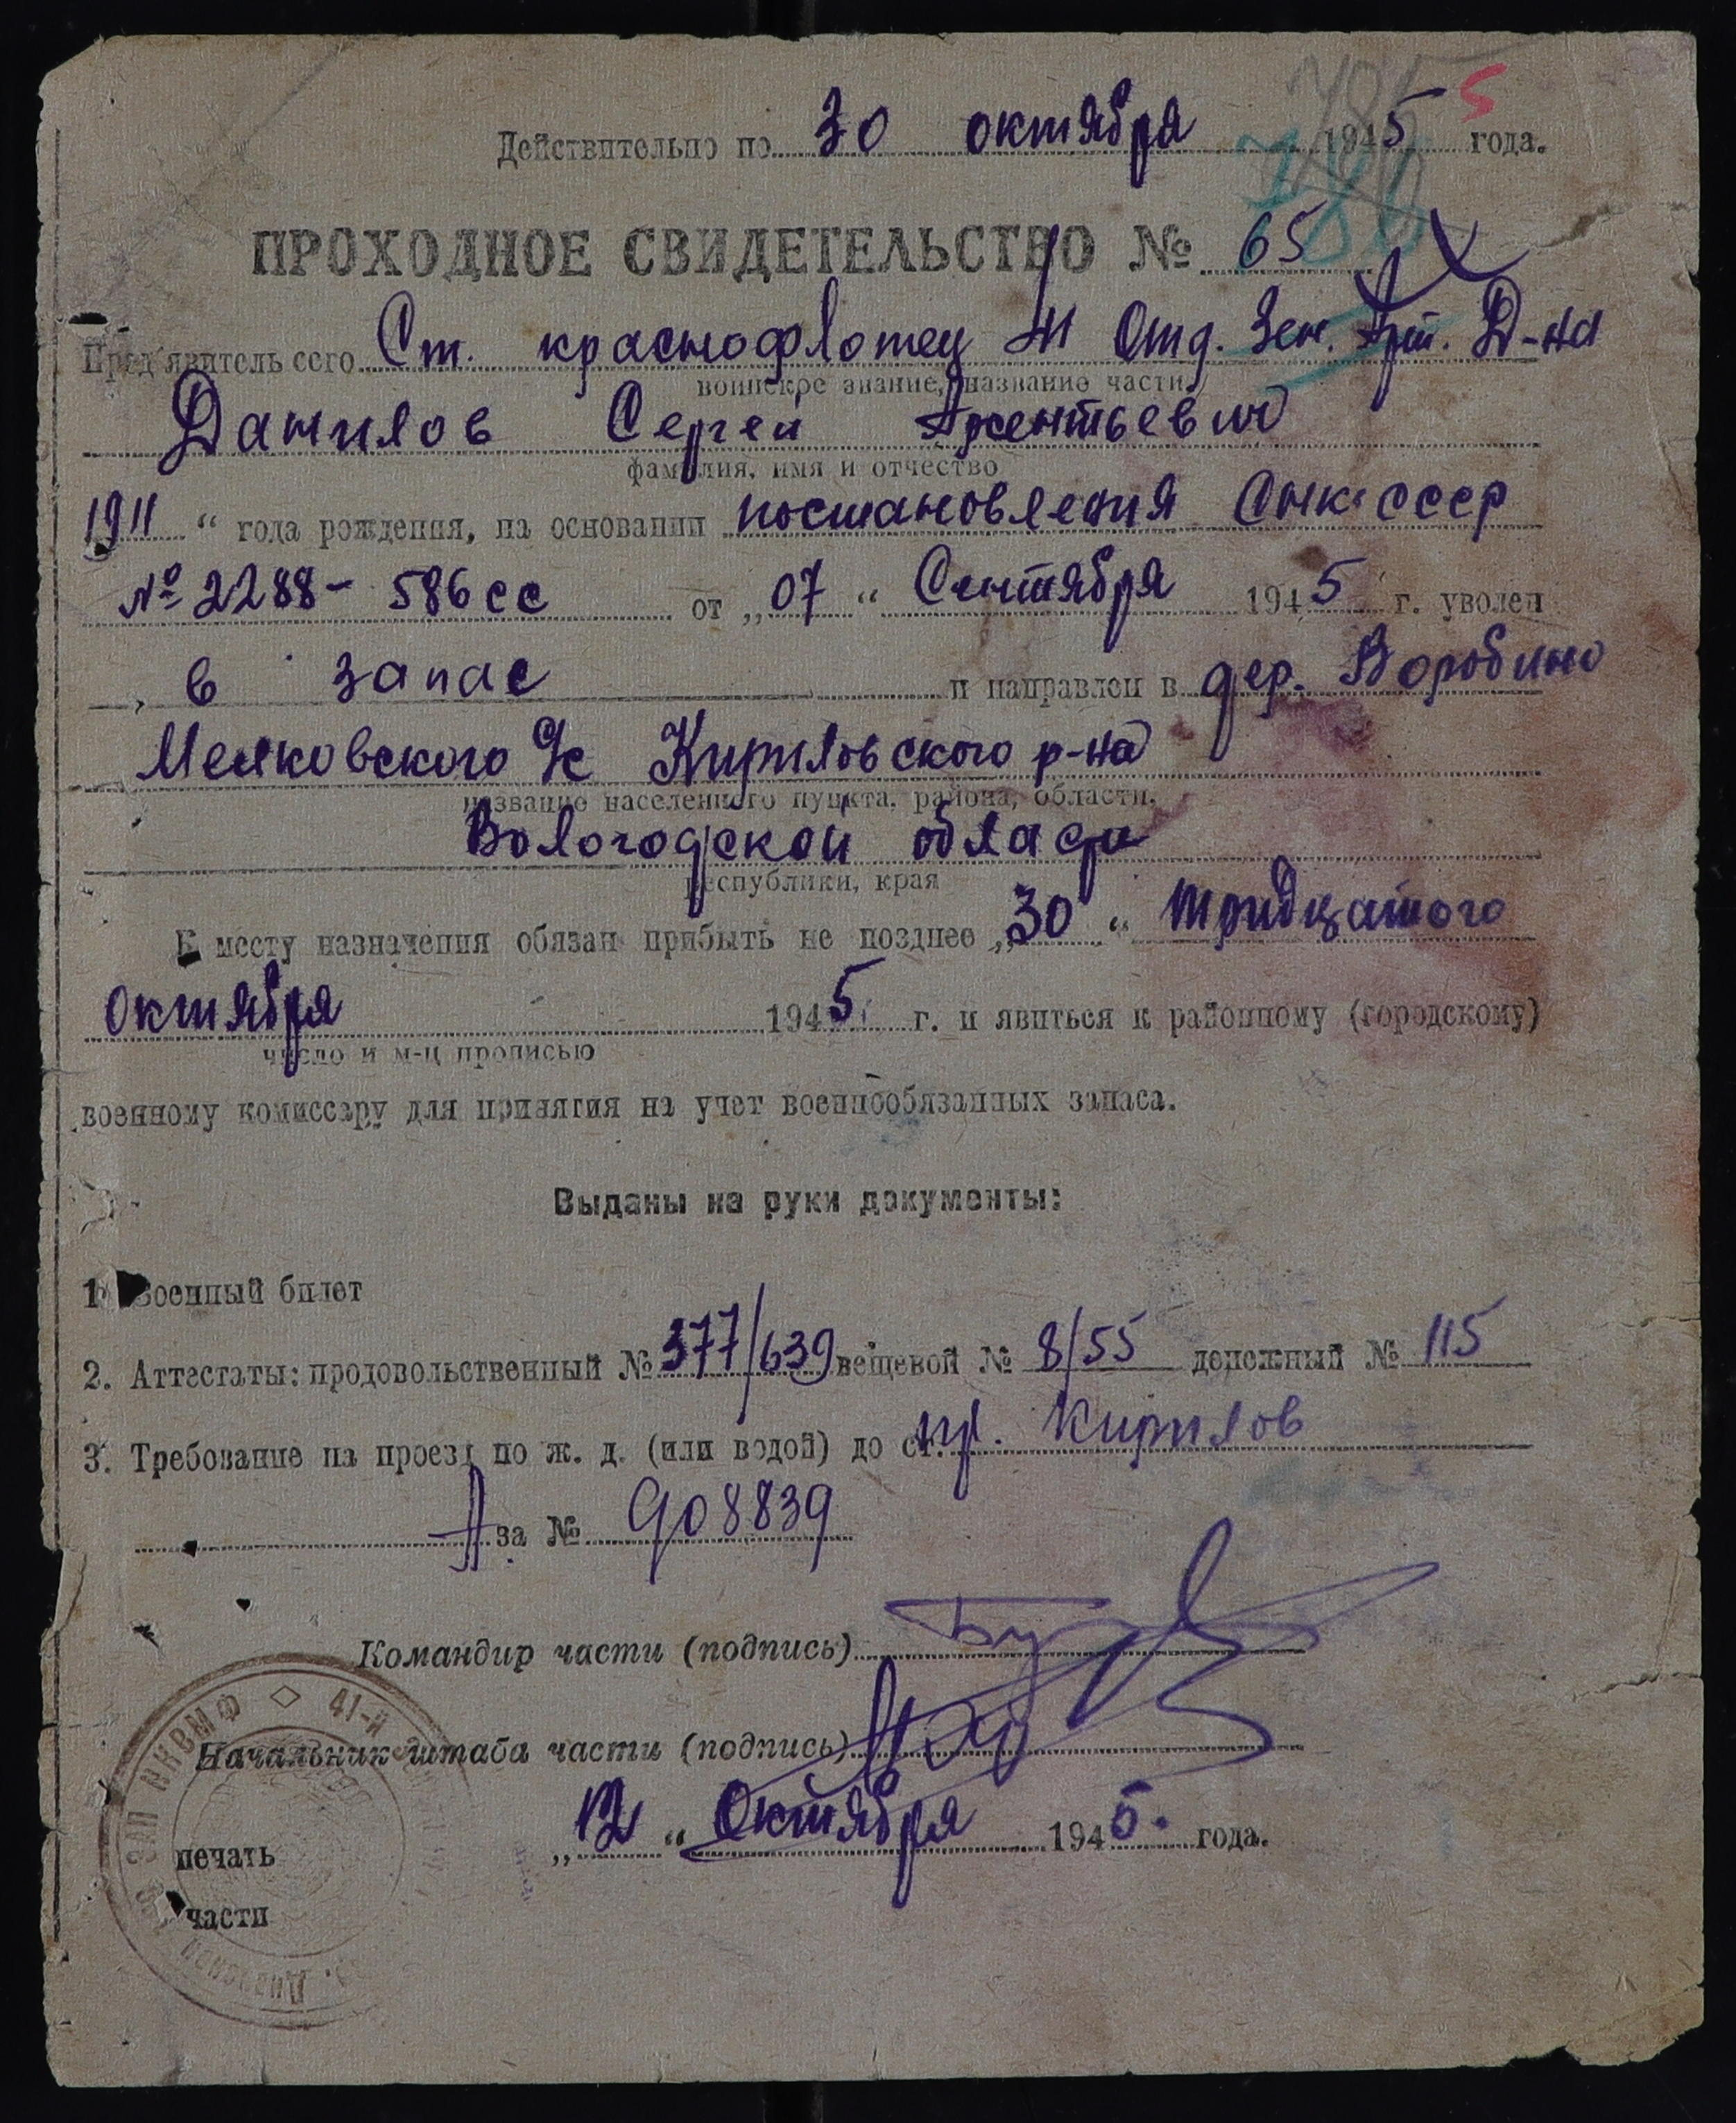 5
Действительно по 30 октября 1945 года.
786
ПРОХОДНОЕ СВИДЕТЕЛЬСТВО № 65
Пред'явитель сего Ст. краснофлотец 41 Отд. Зен. Арт. Д-на
воинское звание, название части
Данилов Сергей
фамилия, имя и отчество
1911 “ года рождения, на основании постановления СНК СССР
№ 2288-586сс от „07“ Сентября 1945 г. уволен
в запас и направлен в дер. Воробино
Кирилловского р-на
название населенного пункта, района, области,
Вологодской области
республики, края
К месту назначения обязан прибыть не позднее „30“ тридцатого
октября 1945 г. и явиться к районному (городскому)
число и м-ц прописью
военному комиссару для принятия на учет военнообязанных запаса.
Выданы на руки документы:
1. Военный билет
2. Аттестаты: продовольственный № 377/639 вещевой № 8/55 денежный № 115
3. Требование на проезд по ж. д. (или водой) до ст. пр. Кирилов
А за № 908839
Командир части (подпись)
Начальник штаба части (подпись)
„12“ Октября 1945. года.
печать
части
НКВМФ ◇ 41-й
Дивизион